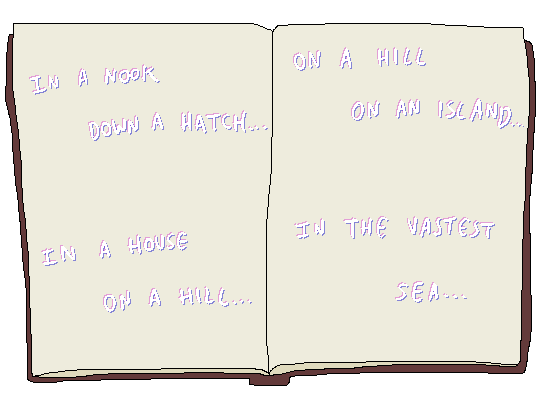 IN A NOOK
DOWN A HATCH...
IN A HOUSE
ON A HILL...
ON A HILL
ON AN ISLAND...
IN THE VASTEST
SEA...